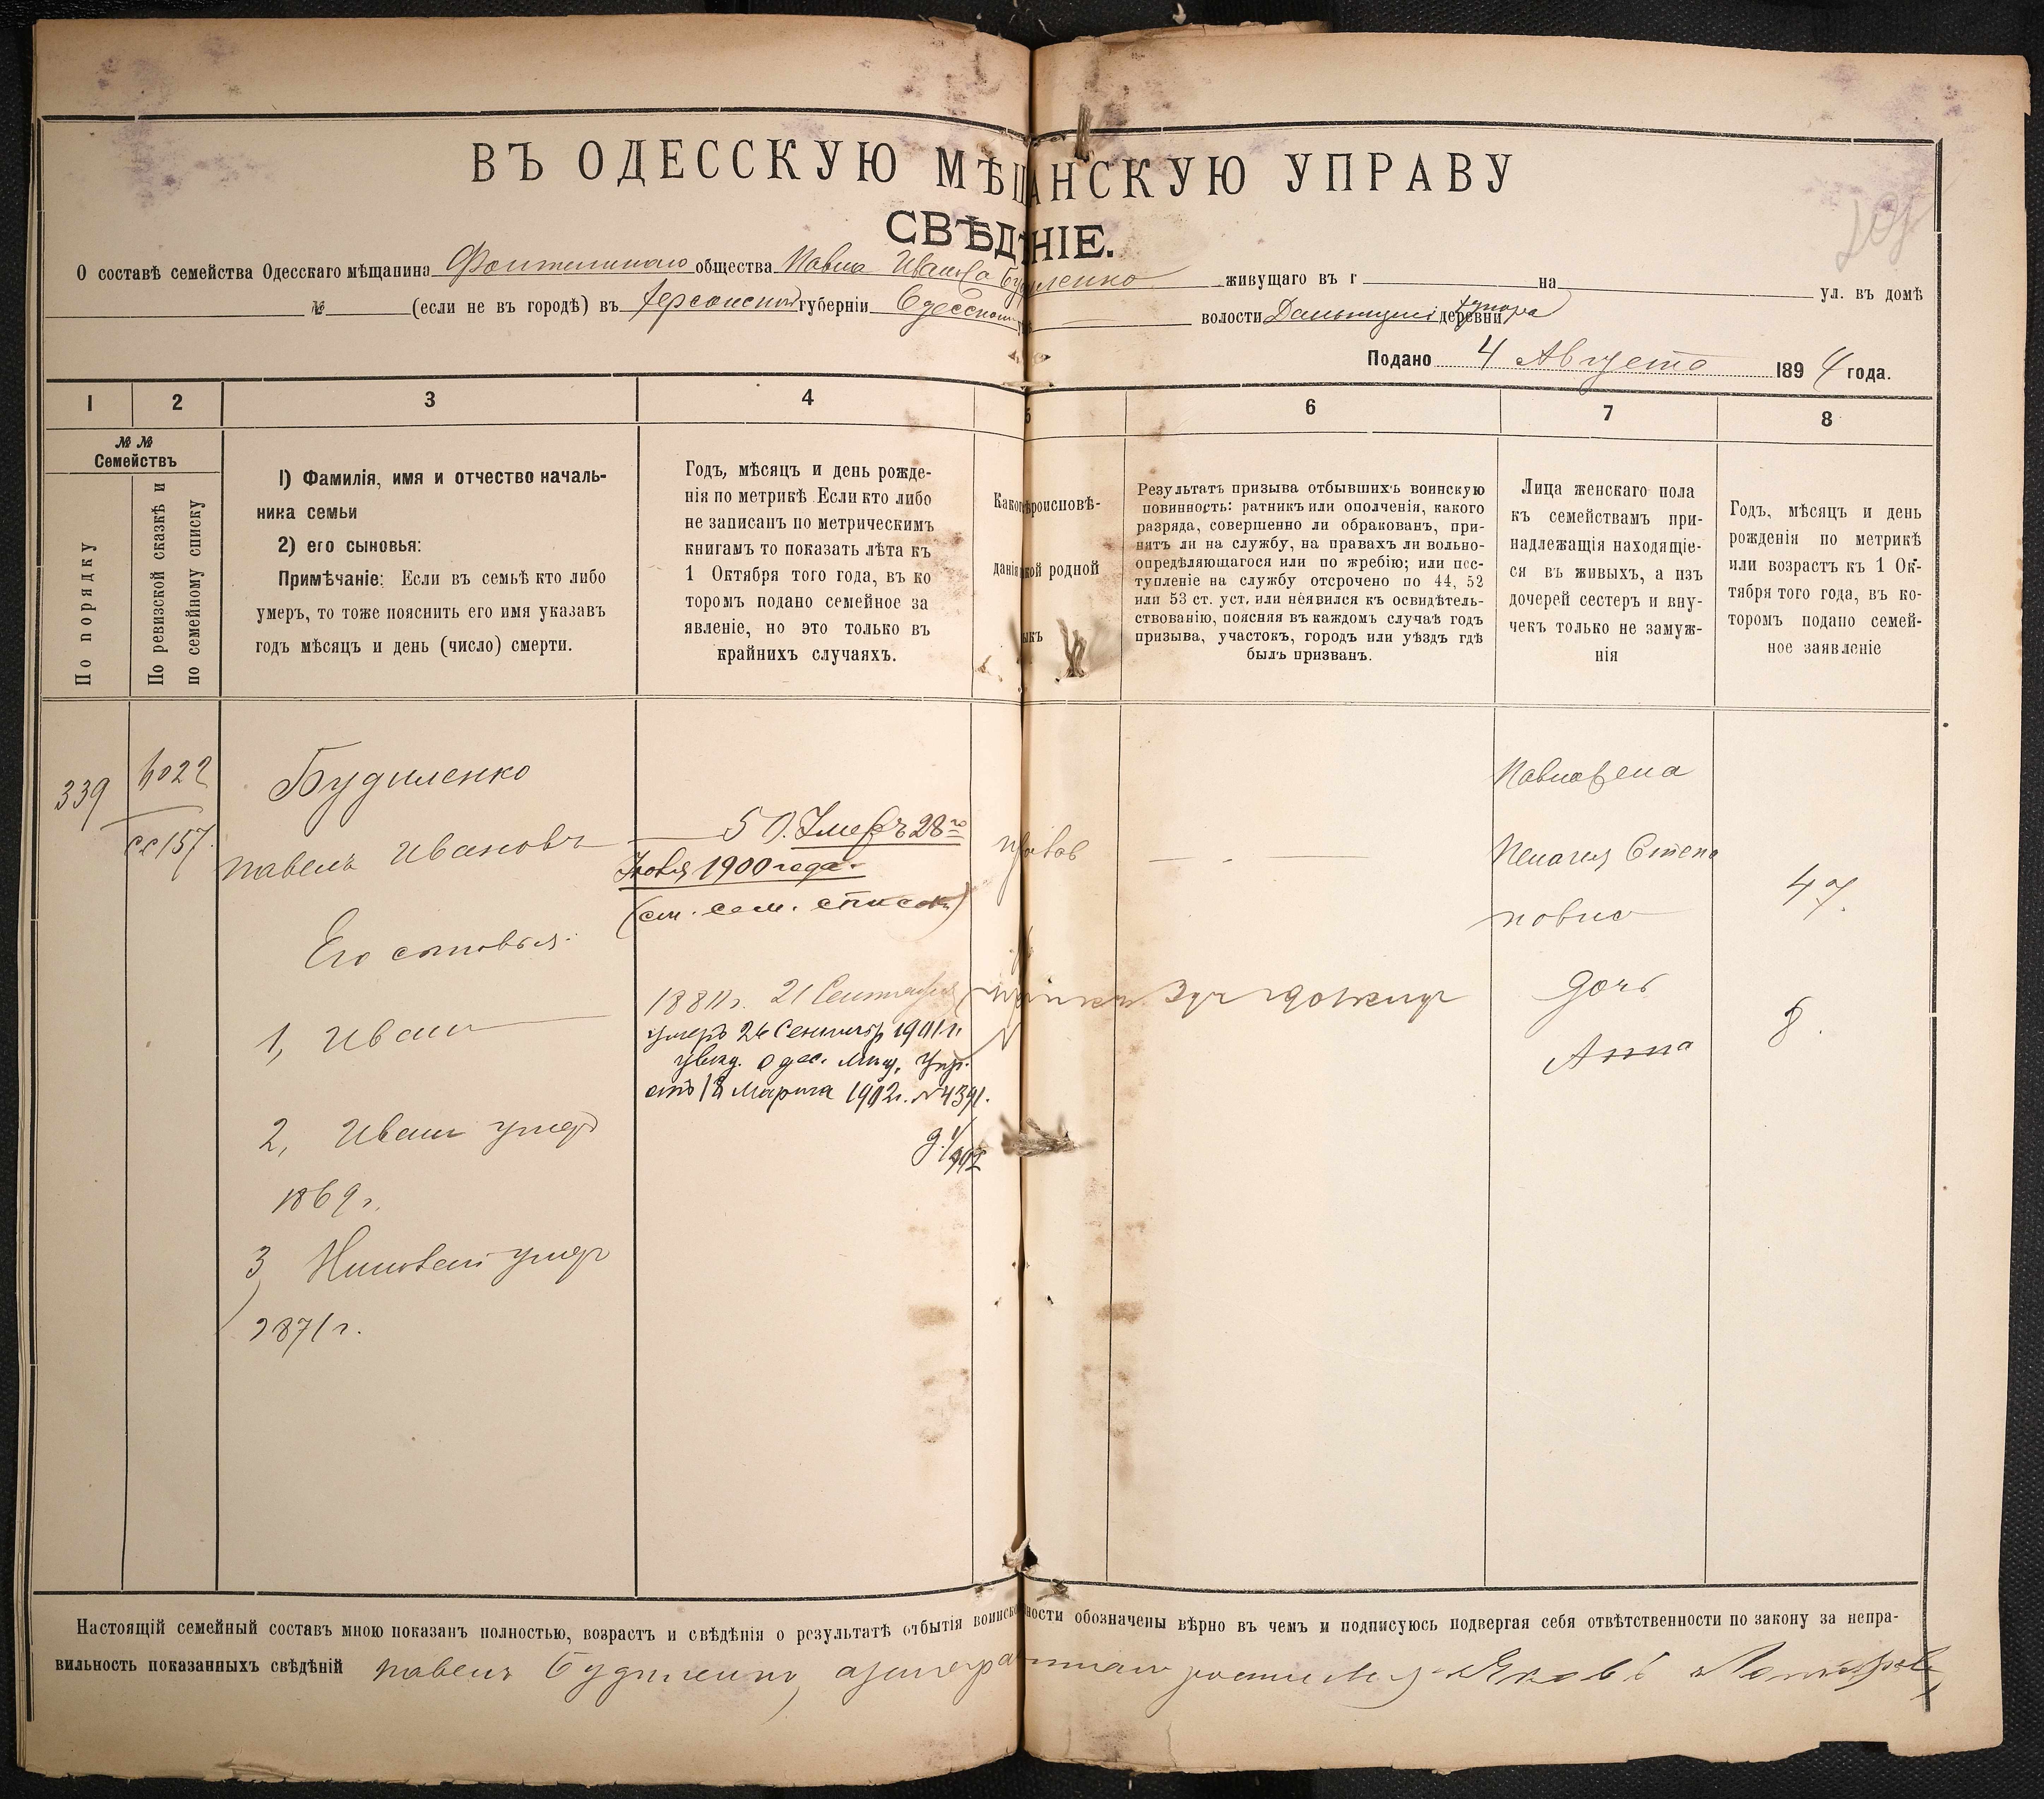 ВЪ ОДЕССКУЮ МѢЩАНСКУЮ УПРАВУ
СВѢДѢНІЕ.
О составѣ семейства Одесскаго мѣщанина общества Павла Иванова Будиленко живущаго въ г на ул. въ домѣ
№ (если не въ городѣ) въ Херсонской губерніи Одесскаго волости Дальницкій деревни хутора
Подано 4 Августа 1894 года.
1 2 3 4 5 6 7 8
№ №
Семействъ
По порядку
По ревизской сказкѣ и
по семейному списку
1) Фамилія, имя и отчество началь-
ника семьи
2) его сыновья:
Примѣчаніе: Если въ семьѣ кто либо
умеръ, то тоже пояснить его имя указавъ
годъ мѣсяцъ и день (число) смерти.
Годъ, мѣсяцъ и день рожде-
нія по метрикѣ Если кто либо
не записанъ по метрическимъ
книгамъ то показать лѣта къ
1 Октября того года, въ ко
торомъ подано семейное за
явленіе, но это только въ
крайнихъ случаяхъ.
Каког ѣроисповѣ-
данія кой родной
ыкъ
Результатъ призыва отбывшихъ воинскую
повинность: ратникъ или ополченія, какого
разряда, совершенно ли обракованъ, при-
нятъ ли на службу, на правахъ ли вольно-
опредѣляющагося или по жребію; или пос-
тупленіе на службу отсрочено по 44, 52
или 53 ст. уст. или неявился къ освидѣтель-
ствованію, поясняя въ каждомъ случаѣ годъ
призыва, участокъ, городъ или уѣздъ гдѣ
былъ призванъ.
Лица женскаго пола
къ семействамъ при-
надлежащія находящіе-
ся въ живыхъ, а изъ
дочерей сестеръ и вну-
чекъ только не замуж-
нія
Годъ, мѣсяцъ и день
рожденія по метрикѣ
или возрастъ къ 1 Ок-
тября того года, въ ко-
торомъ подано семей-
ное заявленіе
339
сс 157.
Будиленко
Павелъ Ивановъ
Его сыновья:
1, Иванъ
2, Иванъ умеръ
1869 г.
3 умеръ
1871 г.
50. Умеръ 28го
1900 года.
(см. сем. списокъ)
21 Сентября
умеръ 26 Сентябр 1901 г.
увѣд. Одес. Мѣщ. Упр.
отъ 18 Марта 1902 г. № 4391.
правос
Павла жена
Пелагея Степа
новна
47.
дочь
Анна
8.
Настоящій семейный составъ мною показанъ полностью, возрастъ и свѣдѣнія о результатѣ отбытія воинско ности обозначены вѣрно въ чемъ и подписуюсь подвергая себя отвѣтственности по закону за непра-
вильность показанныхъ свѣдѣній Павелъ Будиленко, Яковъ